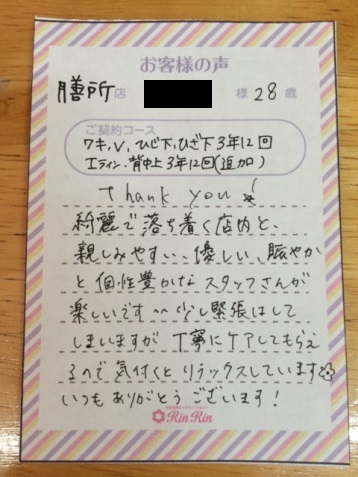 お客様の声
膳所店 様 28歳
ご契約コース
ワキ、V、ひじ下、ひざ下 3年12回
Iライン、背中上 3年12回(追加)
Thank you!
綺麗で落ち着く店内と、
親しみやすい、優しい、賑やか
と個性豊かなスタッフさんが
楽しいです^^ 少し緊張はして
しまいますが 丁寧にケアしてもらえ
るので 気付くと リラックスしています
いつもありがとうございます!
RinRin